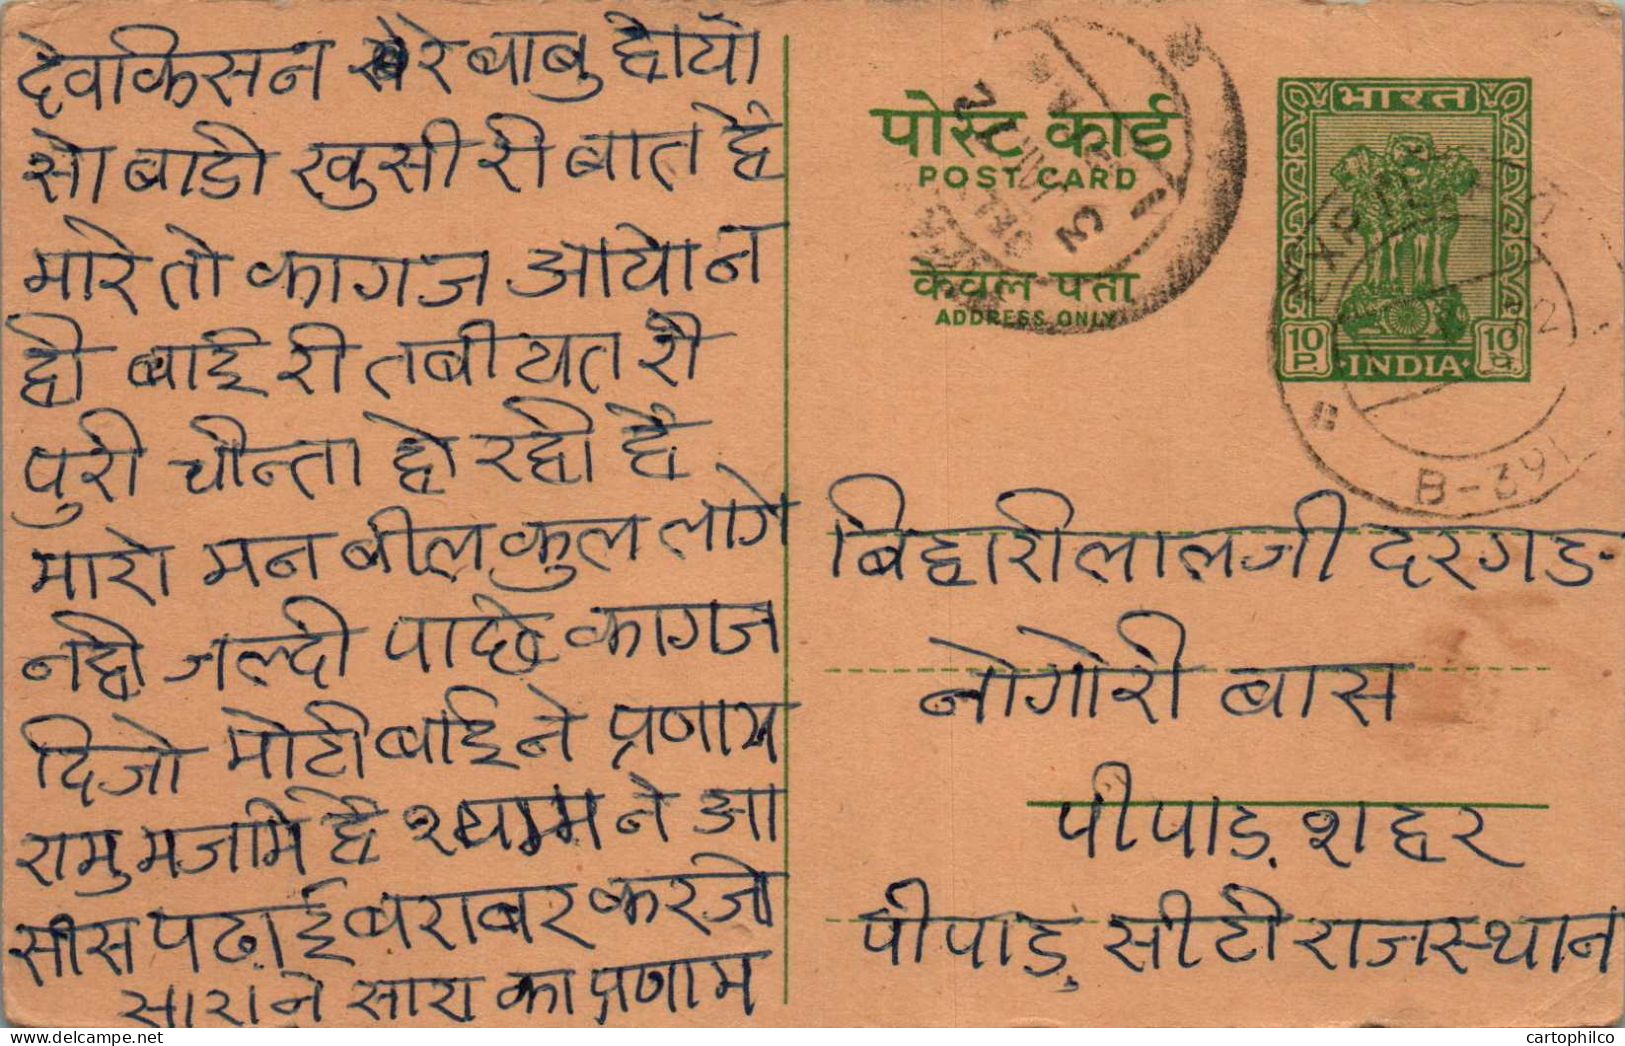 देवकिसन रे बाबु होयो
सो बाडी खुसी री बात है
मारे तो कागज आयो न
ही बाई री तबीयत री
पुरी चीन्ता हो रही है
मारो मन बीलकुल लागे
नही जल्दी पाछो कागज
दिजो मोटी बाई ने प्रणाम
रामु मजामे है श्याम ने आ
सीस पढाई बराबर करजो
सारा ने सारा का प्रणाम
पोस्ट कार्ड
POST CARD
केवल पता
ADDRESS ONLY
भारत
10 P.
INDIA
10 प.
3 JAN 72
B-391
बिहारीलालजी दरगड
नोगोरी बास
पीपाड़ शहर
पीपाड़ सीटी राजस्थान
cartophilco